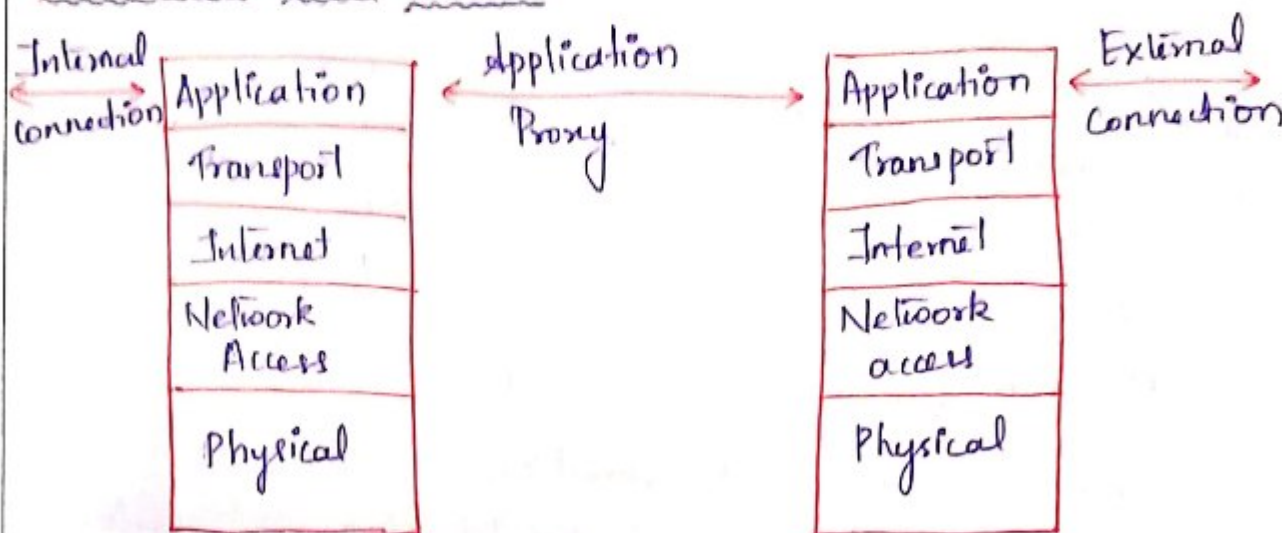 Internal
connection
Application
Transport
Internet
Network
Access
Physical
Application
Proxy
Application
Transport
Internet
Network
access
Physical
External
Connection